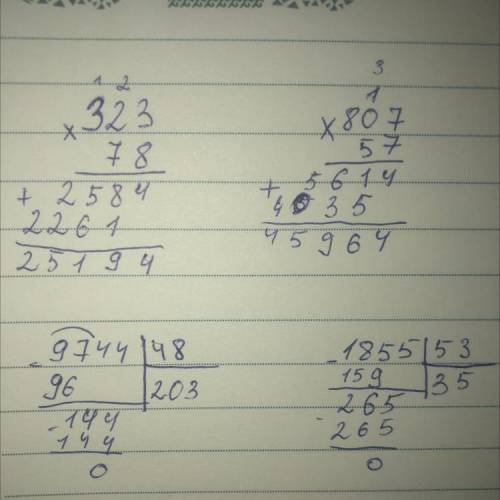 1 2
× 323
78
+ 2584
2261
25194
3
1
× 807
57
+ 5614
4035
45964
- 9744 | 48
96 | 203
- 144
144
0
- 1855 | 53
159 | 35
- 265
265
0